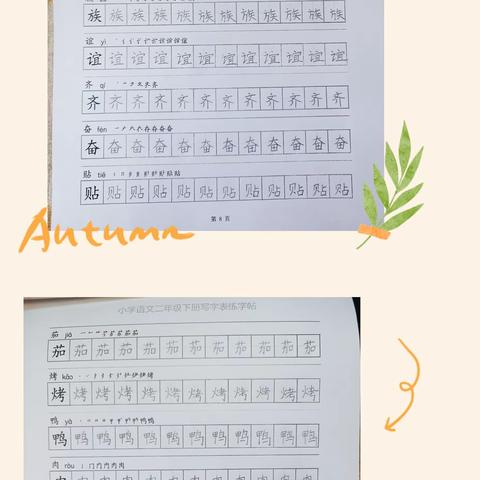 族族族族族族族族族族族
谊 yì
谊谊谊谊谊谊谊谊谊谊谊
齐 qí
齐齐齐齐齐齐齐齐齐齐齐
奋 fèn
奋奋奋奋奋奋奋奋奋奋奋
贴 tiē
贴贴贴贴贴贴贴贴贴贴贴
第 8 页
Autumn
小学语文二年级下册写字表练字帖
茄 jiā
茄茄茄茄茄茄茄茄茄茄茄
烤 kǎo
烤烤烤烤烤烤烤烤烤烤烤
鸭 yā
鸭鸭鸭鸭鸭鸭鸭鸭鸭鸭鸭
肉 ròu